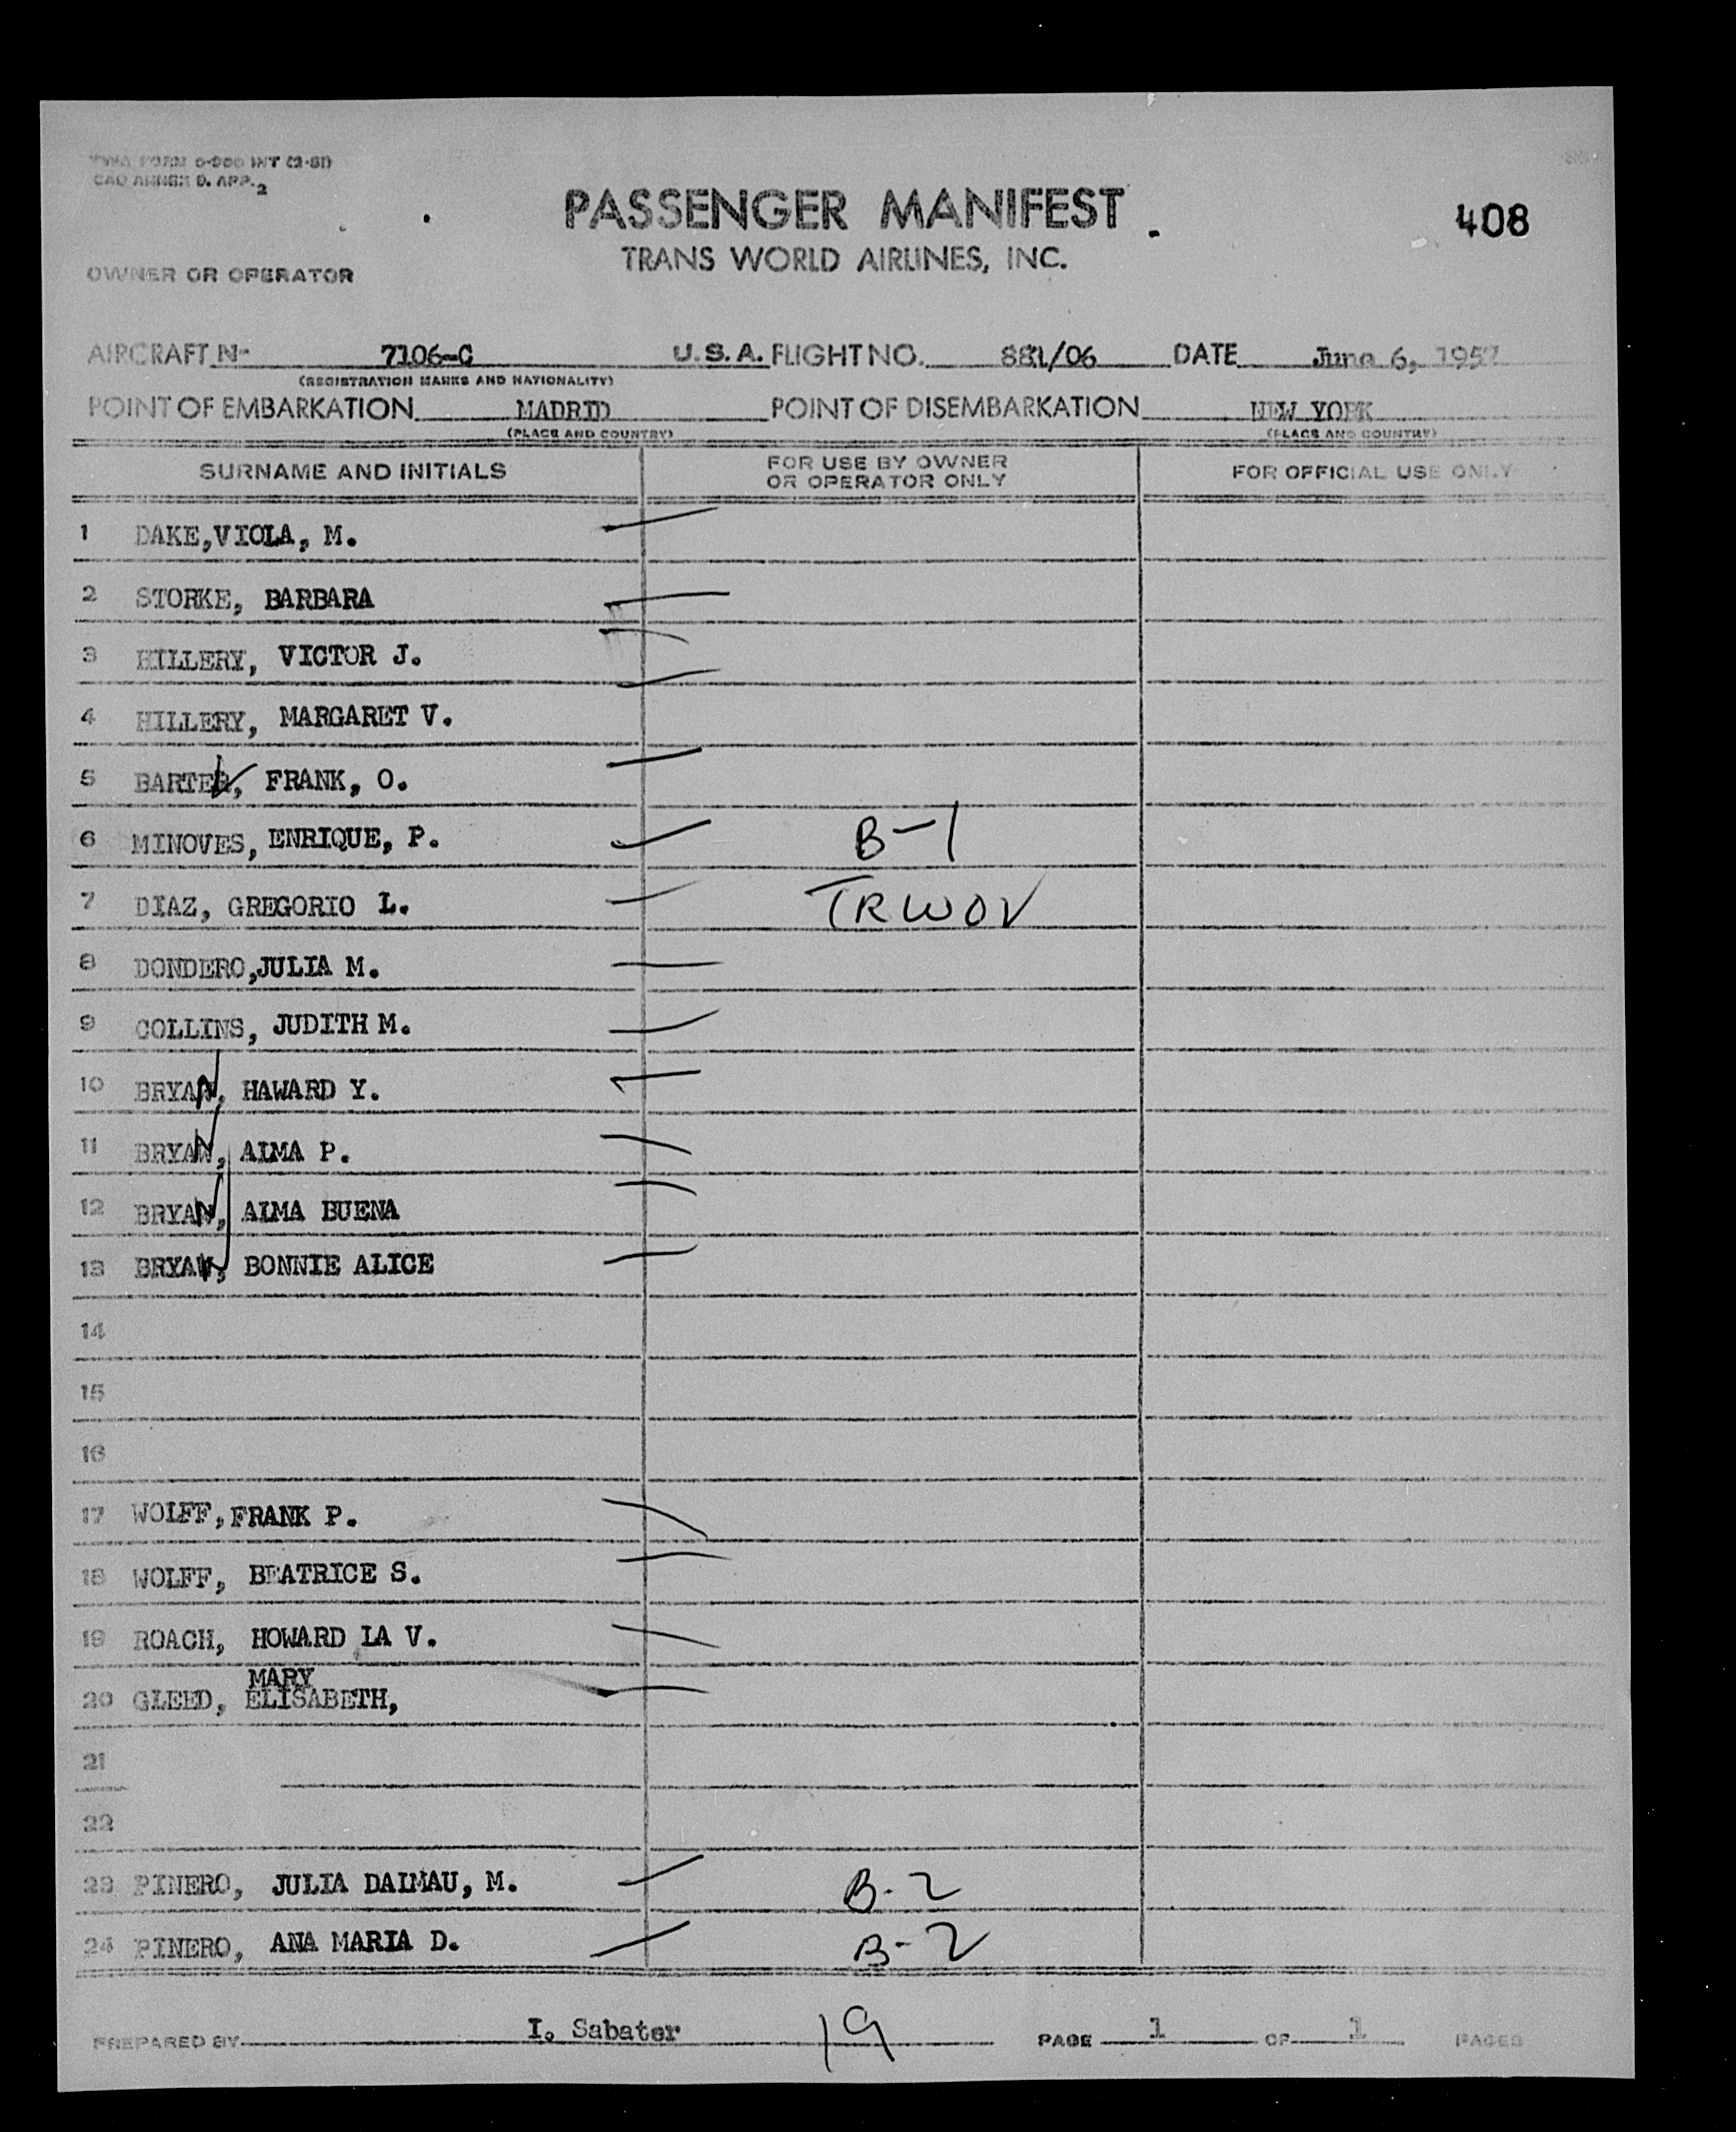 TWA FORM 0-900 INT (2-51)
CAO ANNEX 9. APP. 2
PASSENGER MANIFEST
408
TRANS WORLD AIRLINES, INC.
OWNER OR OPERATOR
AIRCRAFT N- 7106-C U.S.A. FLIGHT NO. 881/06 DATE June 6, 1957
(REGISTRATION MARKS AND NATIONALITY)
POINT OF EMBARKATION MADRID POINT OF DISEMBARKATION NEW YORK
(PLACE AND COUNTRY) (PLACE AND COUNTRY)
SURNAME AND INITIALS FOR USE BY OWNER OR OPERATOR ONLY FOR OFFICIAL USE ONLY
1 DAKE,VIOLA, M.
2 STORKE, BARBARA
3 HILLERY, VICTOR J.
4 HILLERY, MARGARET V.
5 BARTER, FRANK, O.
6 MINOVES, ENRIQUE, P. B-1
7 DIAZ, GREGORIO L. TRWOV
8 DONDERO,JULIA M.
9 COLLINS, JUDITH M.
10 BRYAN, HAWARD Y.
11 BRYAN, ALMA P.
12 BRYAN, ALMA BUENA
13 BRYAN, BONNIE ALICE
14
15
16
17 WOLFF,FRANK P.
18 WOLFF, BEATRICE S.
19 ROACH, HOWARD LA V.
MARY
20 GLEED, ELISABETH,
21
22
23 PINERO, JULIA DALMAU, M. B-2
24 PINERO, ANA MARIA D. B-2
PREPARED BY I. Sabater 19 PAGE 1 OF 1 PAGES